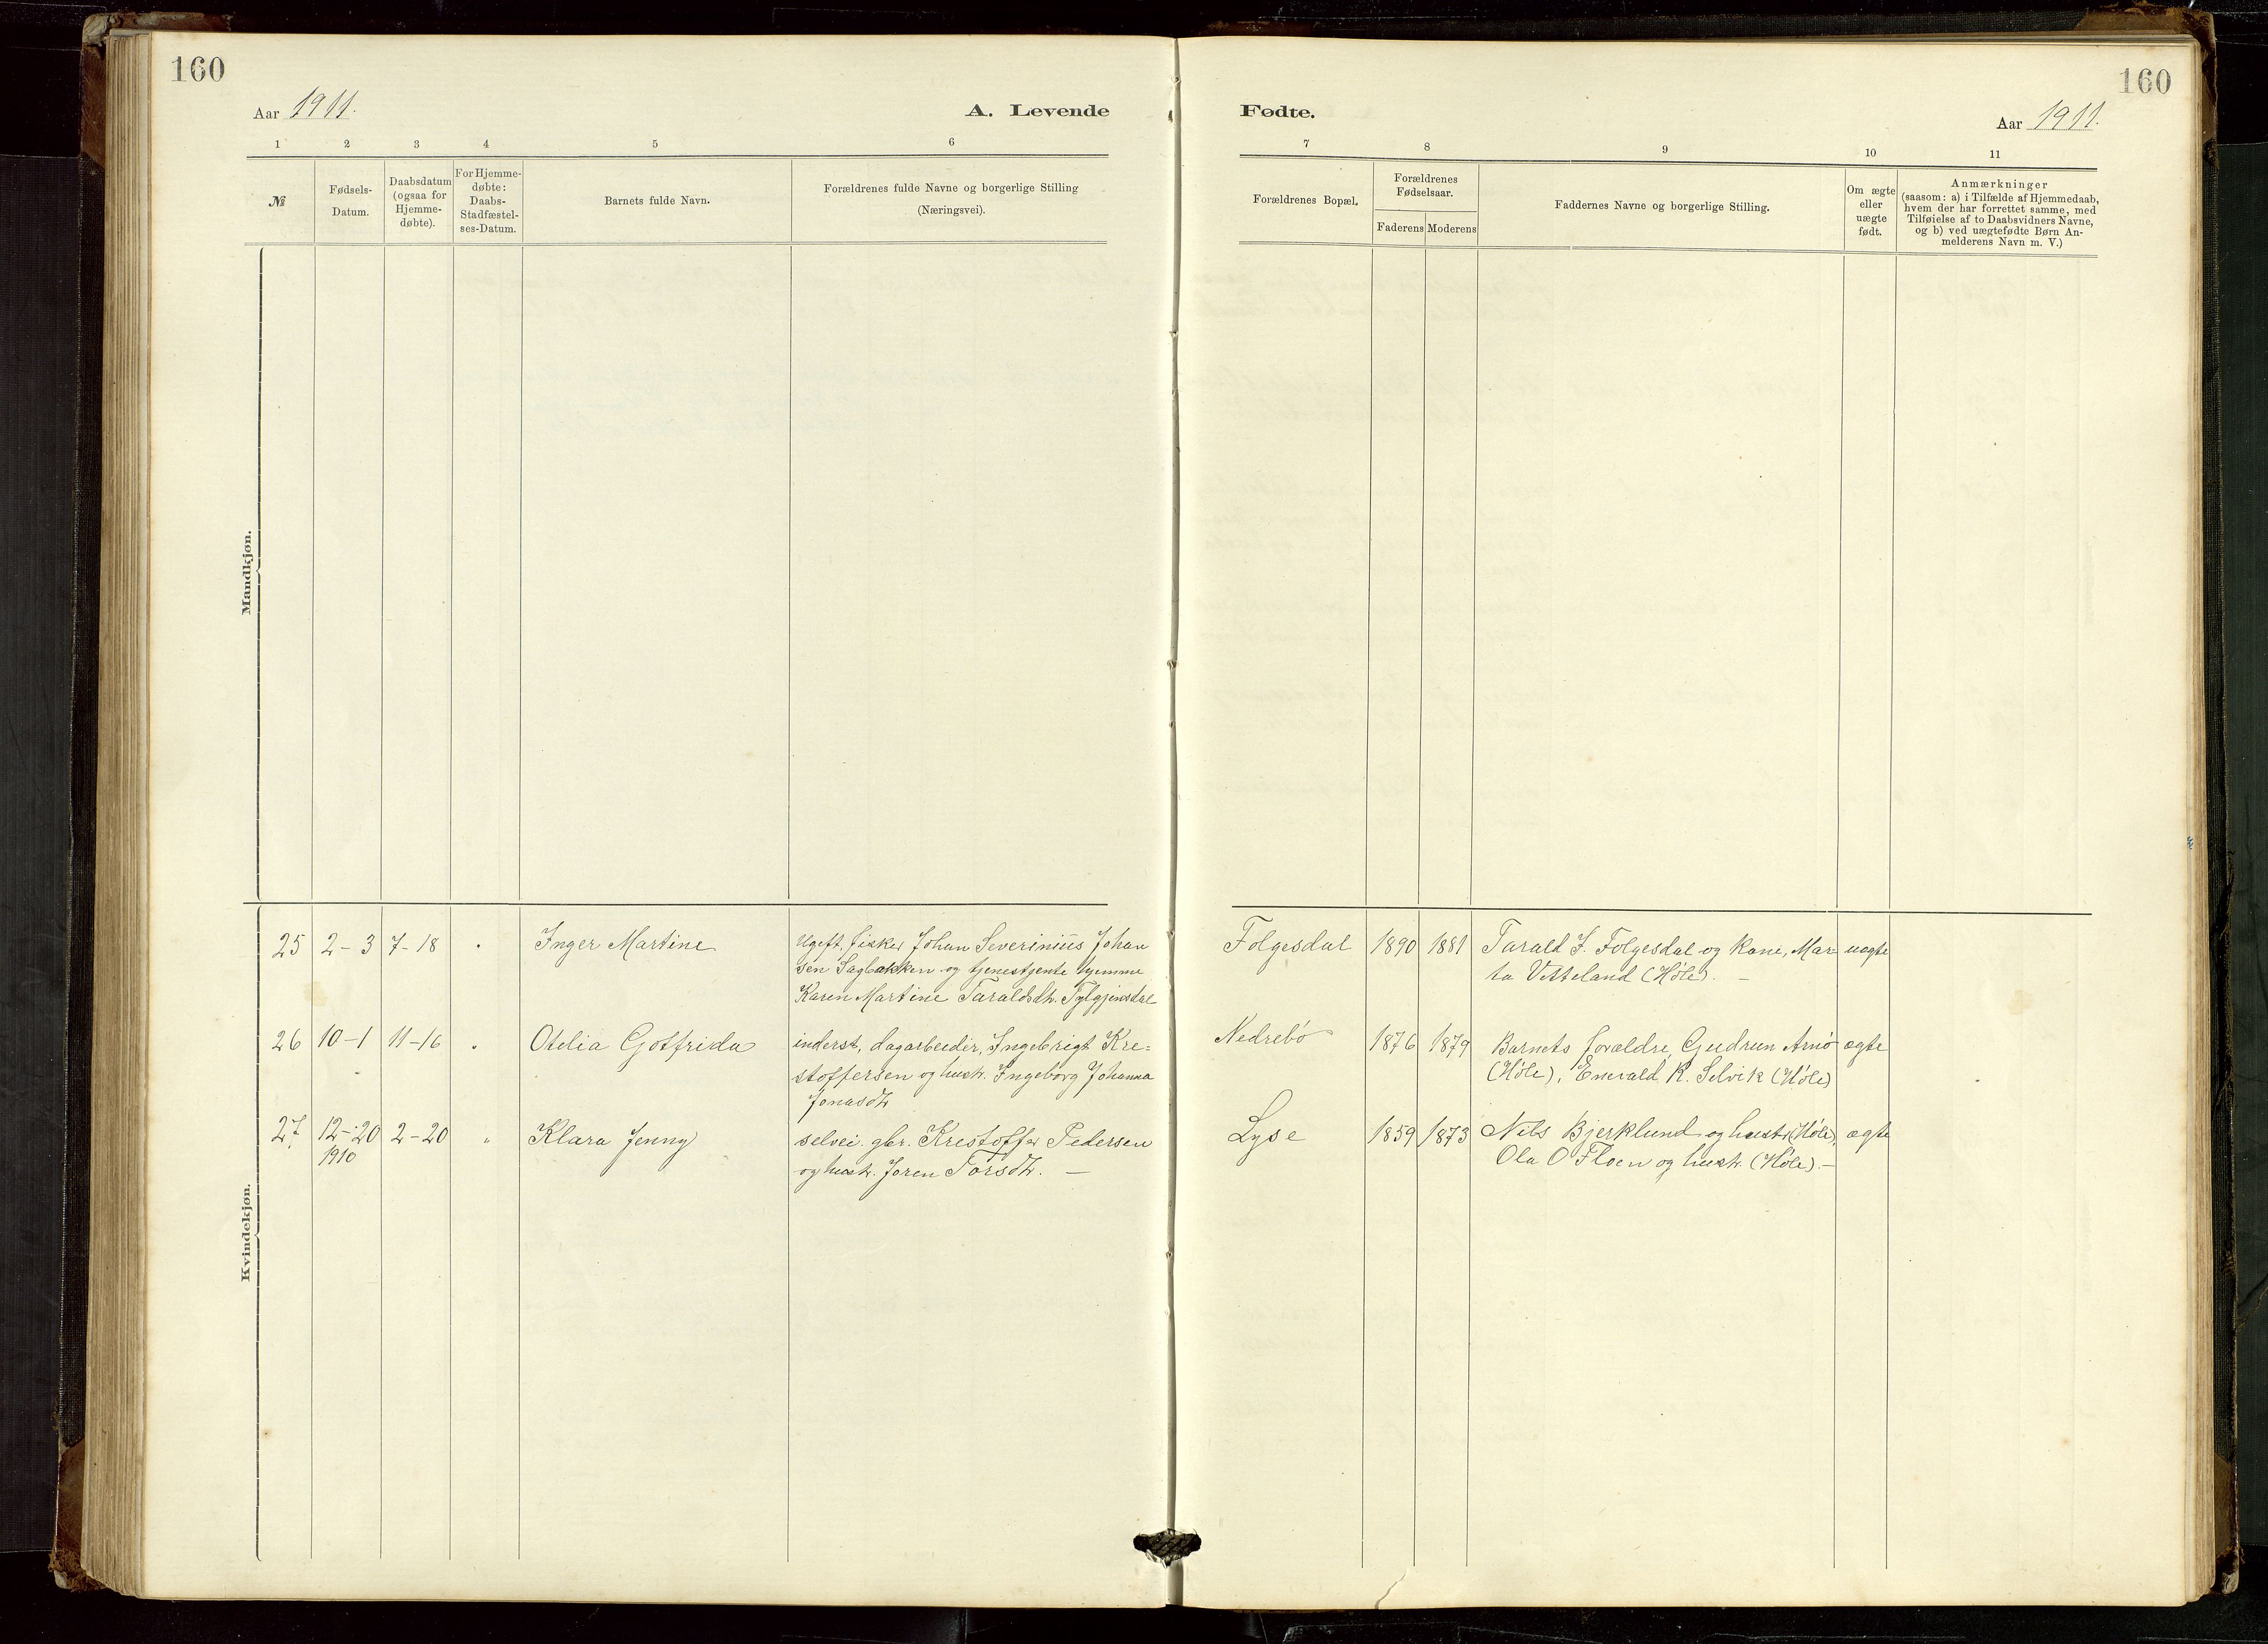 160
Aar 1911.
A. Levende
1 2 3 4 5 6
№
Fødsels-
Datum.
Daabsdatum
(ogsaa for
Hjemme-
døbte).
For Hjemme-
døbte:
Daabs-
Stadfæstel-
ses-Datum.
Barnets fulde Navn.
Forældrenes fulde Navne og borgerlige Stilling
(Næringsvei).
Mandkjøn.
Kvindekjøn.
25 2-3 7-18 " Inger Martine
Ugift, fisker Johan Severinius Johan
sen Sagbakken og tjenestjente hjemme
Karen Martine Taraldsdtr.
26 10-1 11-16 " Otelia Gotfrida
inderst, dagarbeider, Ingebrigt Kre=
stoffersen og hustr. Ingeborg Johanna
Jonasdtr
27. 12-20 2-20 " Klara Jenny
1910
selvei. gbr. Krestoffer Pedersen
og hustr. Joren Torsdtr. —
160
Fødte.
Aar 1911.
7 8 9 10 11
Forældrenes Bopæl.
Forældrenes
Fødselsaar.
Faderens Moderens
Faddernes Navne og borgerlige Stilling.
Om ægte
eller
uægte
født.
Anmærkninger
(saasom: a) i Tilfælde af Hjemmedaab,
hvem der har forrettet samme, med
Tilføielse af to Daabsvidners Navne,
og b) ved uægtefødte Børn An-
melderens Navn m. V.)
Folgesdal 1890 1881 Tarald J. Folgesdal og kone, Mar= uægte
ta Vetteland (Höle). —
Nedrebö 1876 1879 Barnets forældre, Gudrun Arnö ægte
(Höle), Enevald K. Selvik (Höle)
Lyse 1859 1873 Nils Bjerklund og hustr (Höle), ægte
Ola O Floen og hustr. (Höle). —